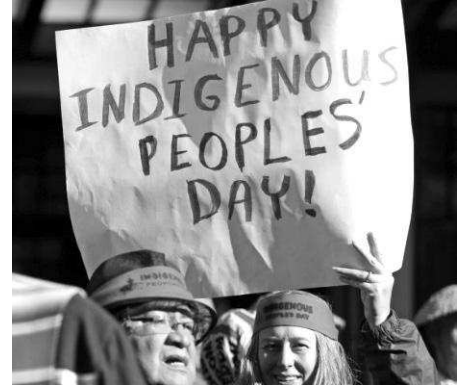 HAPPY
INDIGENOUS
PEOPLES'
DAY!
INDIGENOUS
PEOPLES DAY